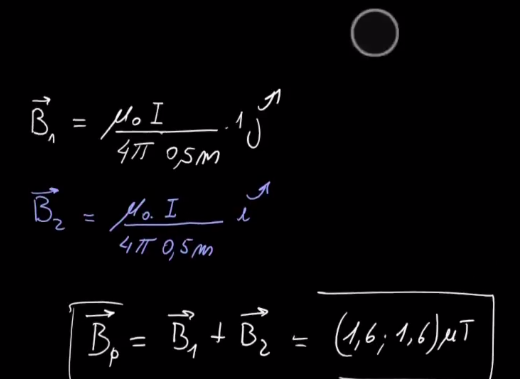 B⃗₁ = μ₀ I / 4π 0,5m · 1 j⃗
B⃗₂ = μ₀. I / 4π 0,5m i⃗
B⃗ₚ = B⃗₁ + B⃗₂ = (1,6; 1,6) μT